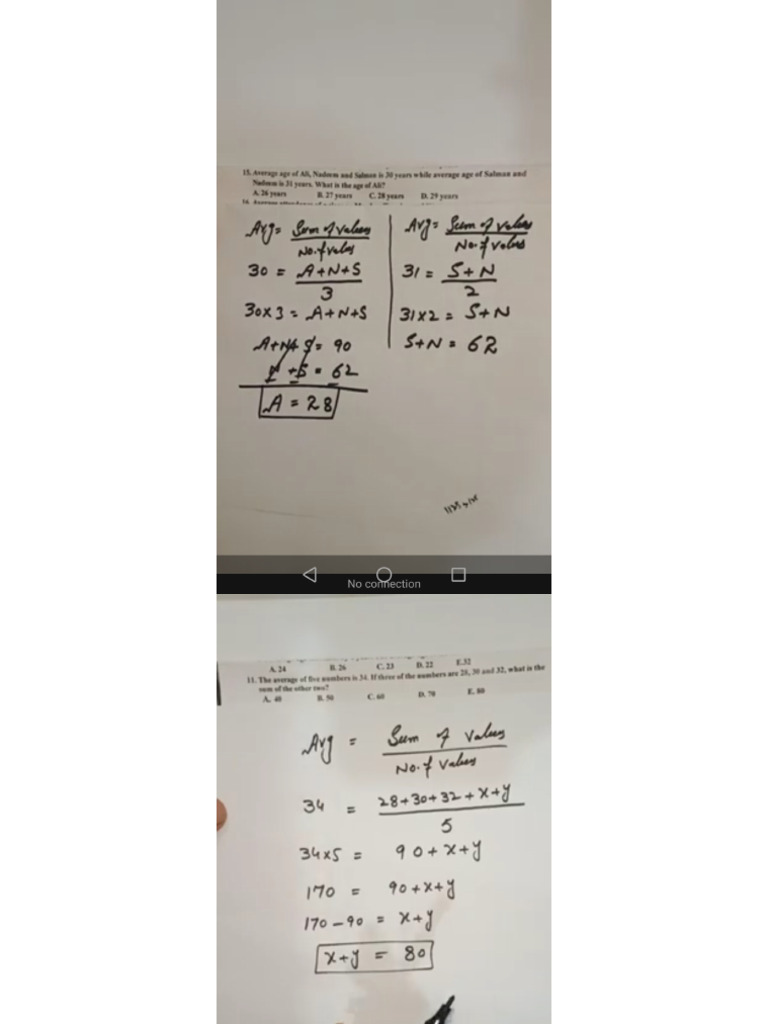 15. Average age of Ali, Nadeem and Salman is 30 years while average age of Salman and
Nadeem is 31 years. What is the age of Ali?
A. 26 years B. 27 years C. 28 years D. 29 years
16. Average
Avg = Sum of values
No. of values
30 = A+N+S
3
30x3 = A+N+S
A+N+S = 90
N+S = 62
A = 28
Avg = Sum of values
No. of values
31 = S+N
2
31x2 = S+N
S+N = 62
No connection
A. 24 B. 26 C. 23 D. 22 E.32
11. The average of five numbers is 34. If three of the numbers are 28, 30 and 32, what is the
sum of the other two?
A. 40 B. 50 C. 60 D. 70 E. 80
Avg = Sum of values
No. of values
34 = 28+30+32+x+y
5
34x5 = 90+x+y
170 = 90+x+y
170-90 = x+y
x+y = 80